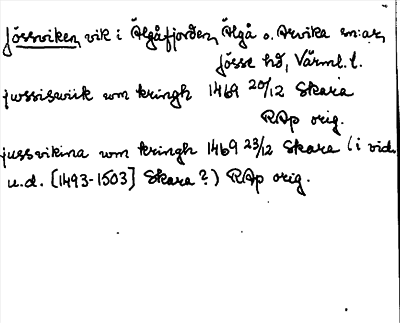 Jössviken, vik i Älgåfjorden, Älgå o. Arvika sn:ar,
Jösse hd, Värml. l.
jwssiswiik wm kringh 1469 20/12 Skara
RAp orig.
jussvikina wm kringh 1469 23/12 Skara (i vid.
u.d. [1493-1503] Skara?) RAp orig.